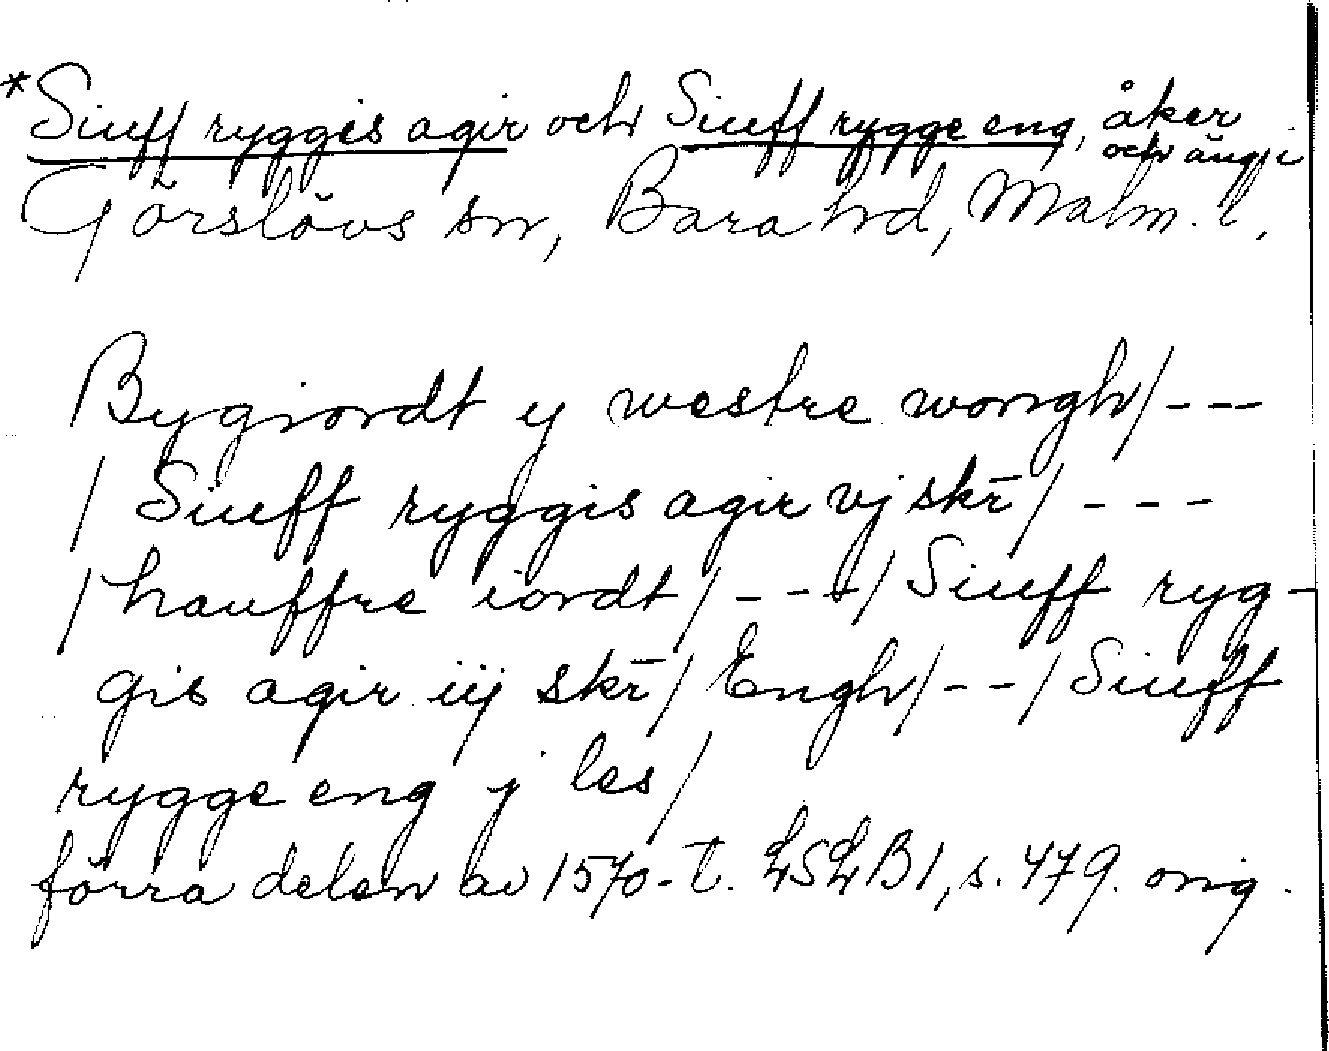 *Siuff ryggis agir och Siuff rygge eng, åker och äng i
Görslövs sn, Bara hd, Malm. l.
Bygiordt y westre wongh/---
/ Siuff ryggis agir vj skr̄/ ---
/hauffre iordt/---/Siuff ryg-
gis agir iij skr̄/ Engh/--/Siuff
rygge eng j les/
förra delen av 1570-t. LSLB1, s. 479. orig.